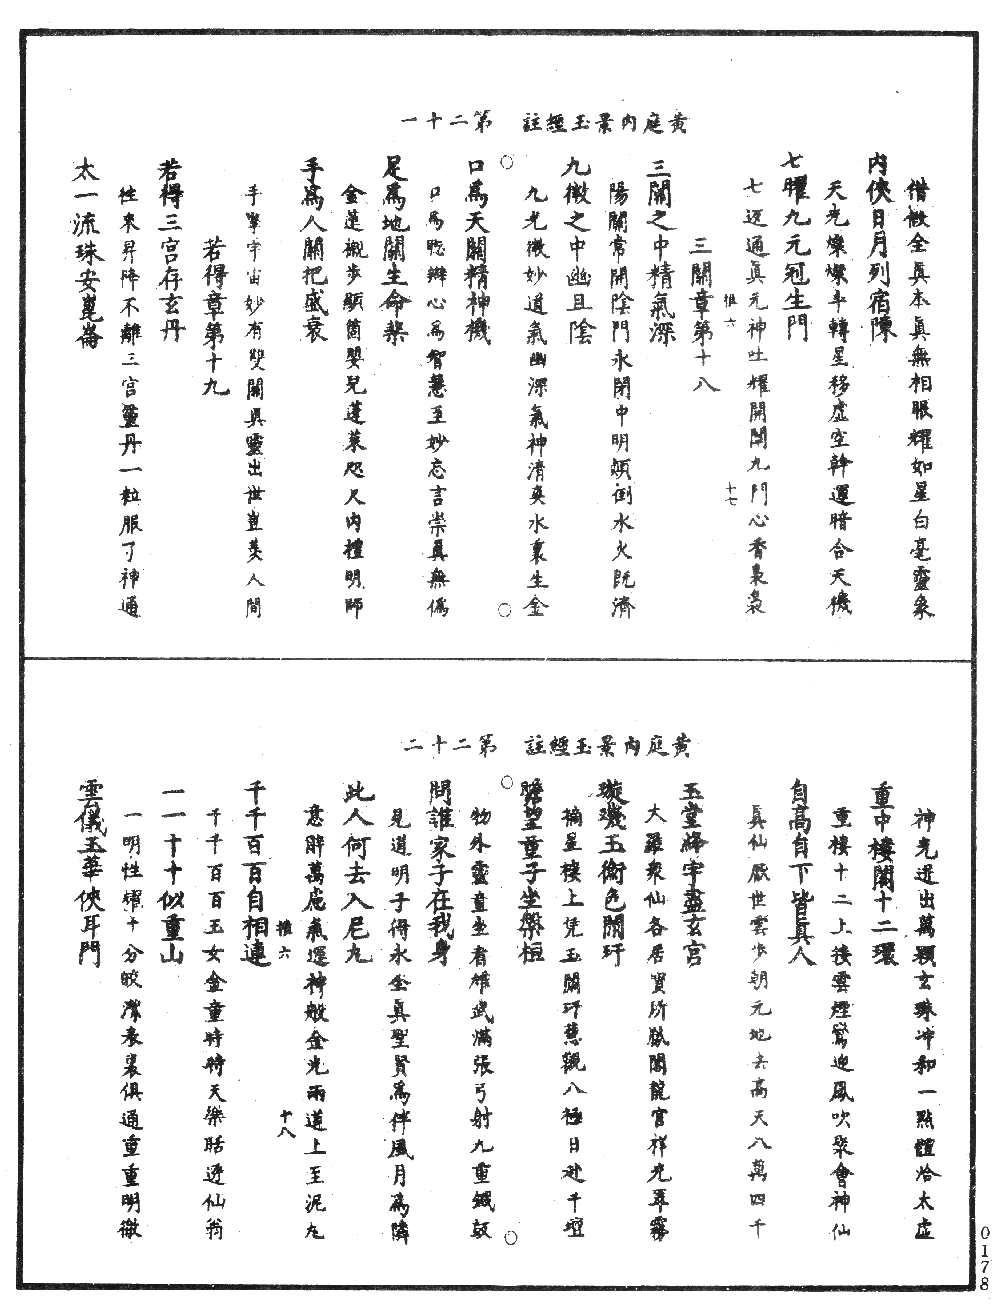 黃庭內景玉經註　第二十一
借散全真本真無相眼耀如星白毫靈象
內俠日月列宿陳
天光燦燦斗轉星移虛空斡運暗合天機
七曜九元冠生門
七迢通真元神吐耀開闔九門心香裊裊
推六　十七
三關章第十八
三關之中精氣深
陽關常開陰門永閉中明傾倒水火既濟
九微之中幽且陰
九光微妙道氣幽深氣神清爽水裏生金
口為天關精神機
口為悅辯心為智慧至妙忘言崇真無偽
足為地關生命棐
金蓮襯步顯箇嬰兒蓬萊咫尺內禮明師
手為人關把盛衰
手擎宇宙妙有雙關真靈出世豈羨人間
若得章第十九
若得三宮存玄丹
性來昇降不離三宮靈丹一粒服了神通
太一流珠安崑崙
黃庭內景玉經註　第二十二
神光迸出萬顆玄珠冲和一點體洽太虛
重中樓閣十二環
重樓十二上接雲煙鸞迎鳳吹聚會神仙
自高自下皆真人
真仙厭世雲步朝元地去高天八萬四千
玉堂絳宇盡玄宮
大羅眾仙各居寶所嶽闊龍宮祥光罩霧
璇璣玉衡色闌玕
摘星樓上凭玉闌玕慧觀八極日赴千壇
瞻望童子坐槃桓
物外靈童生者雄武滿張弓射九重鐵鼓
問誰家子在我身
見道明子得永全真聖賢為伴風月為隣
此人何去入尼丸
意辭萬慮氣運神般金光兩道上至泥丸
推六　十八
千千百百自相連
千千百百玉女金童時時天樂聒透仙翁
一一十十似重山
一明性耀十分皎潔表裏俱通重重明徹
雲儀玉華俠耳門
0178